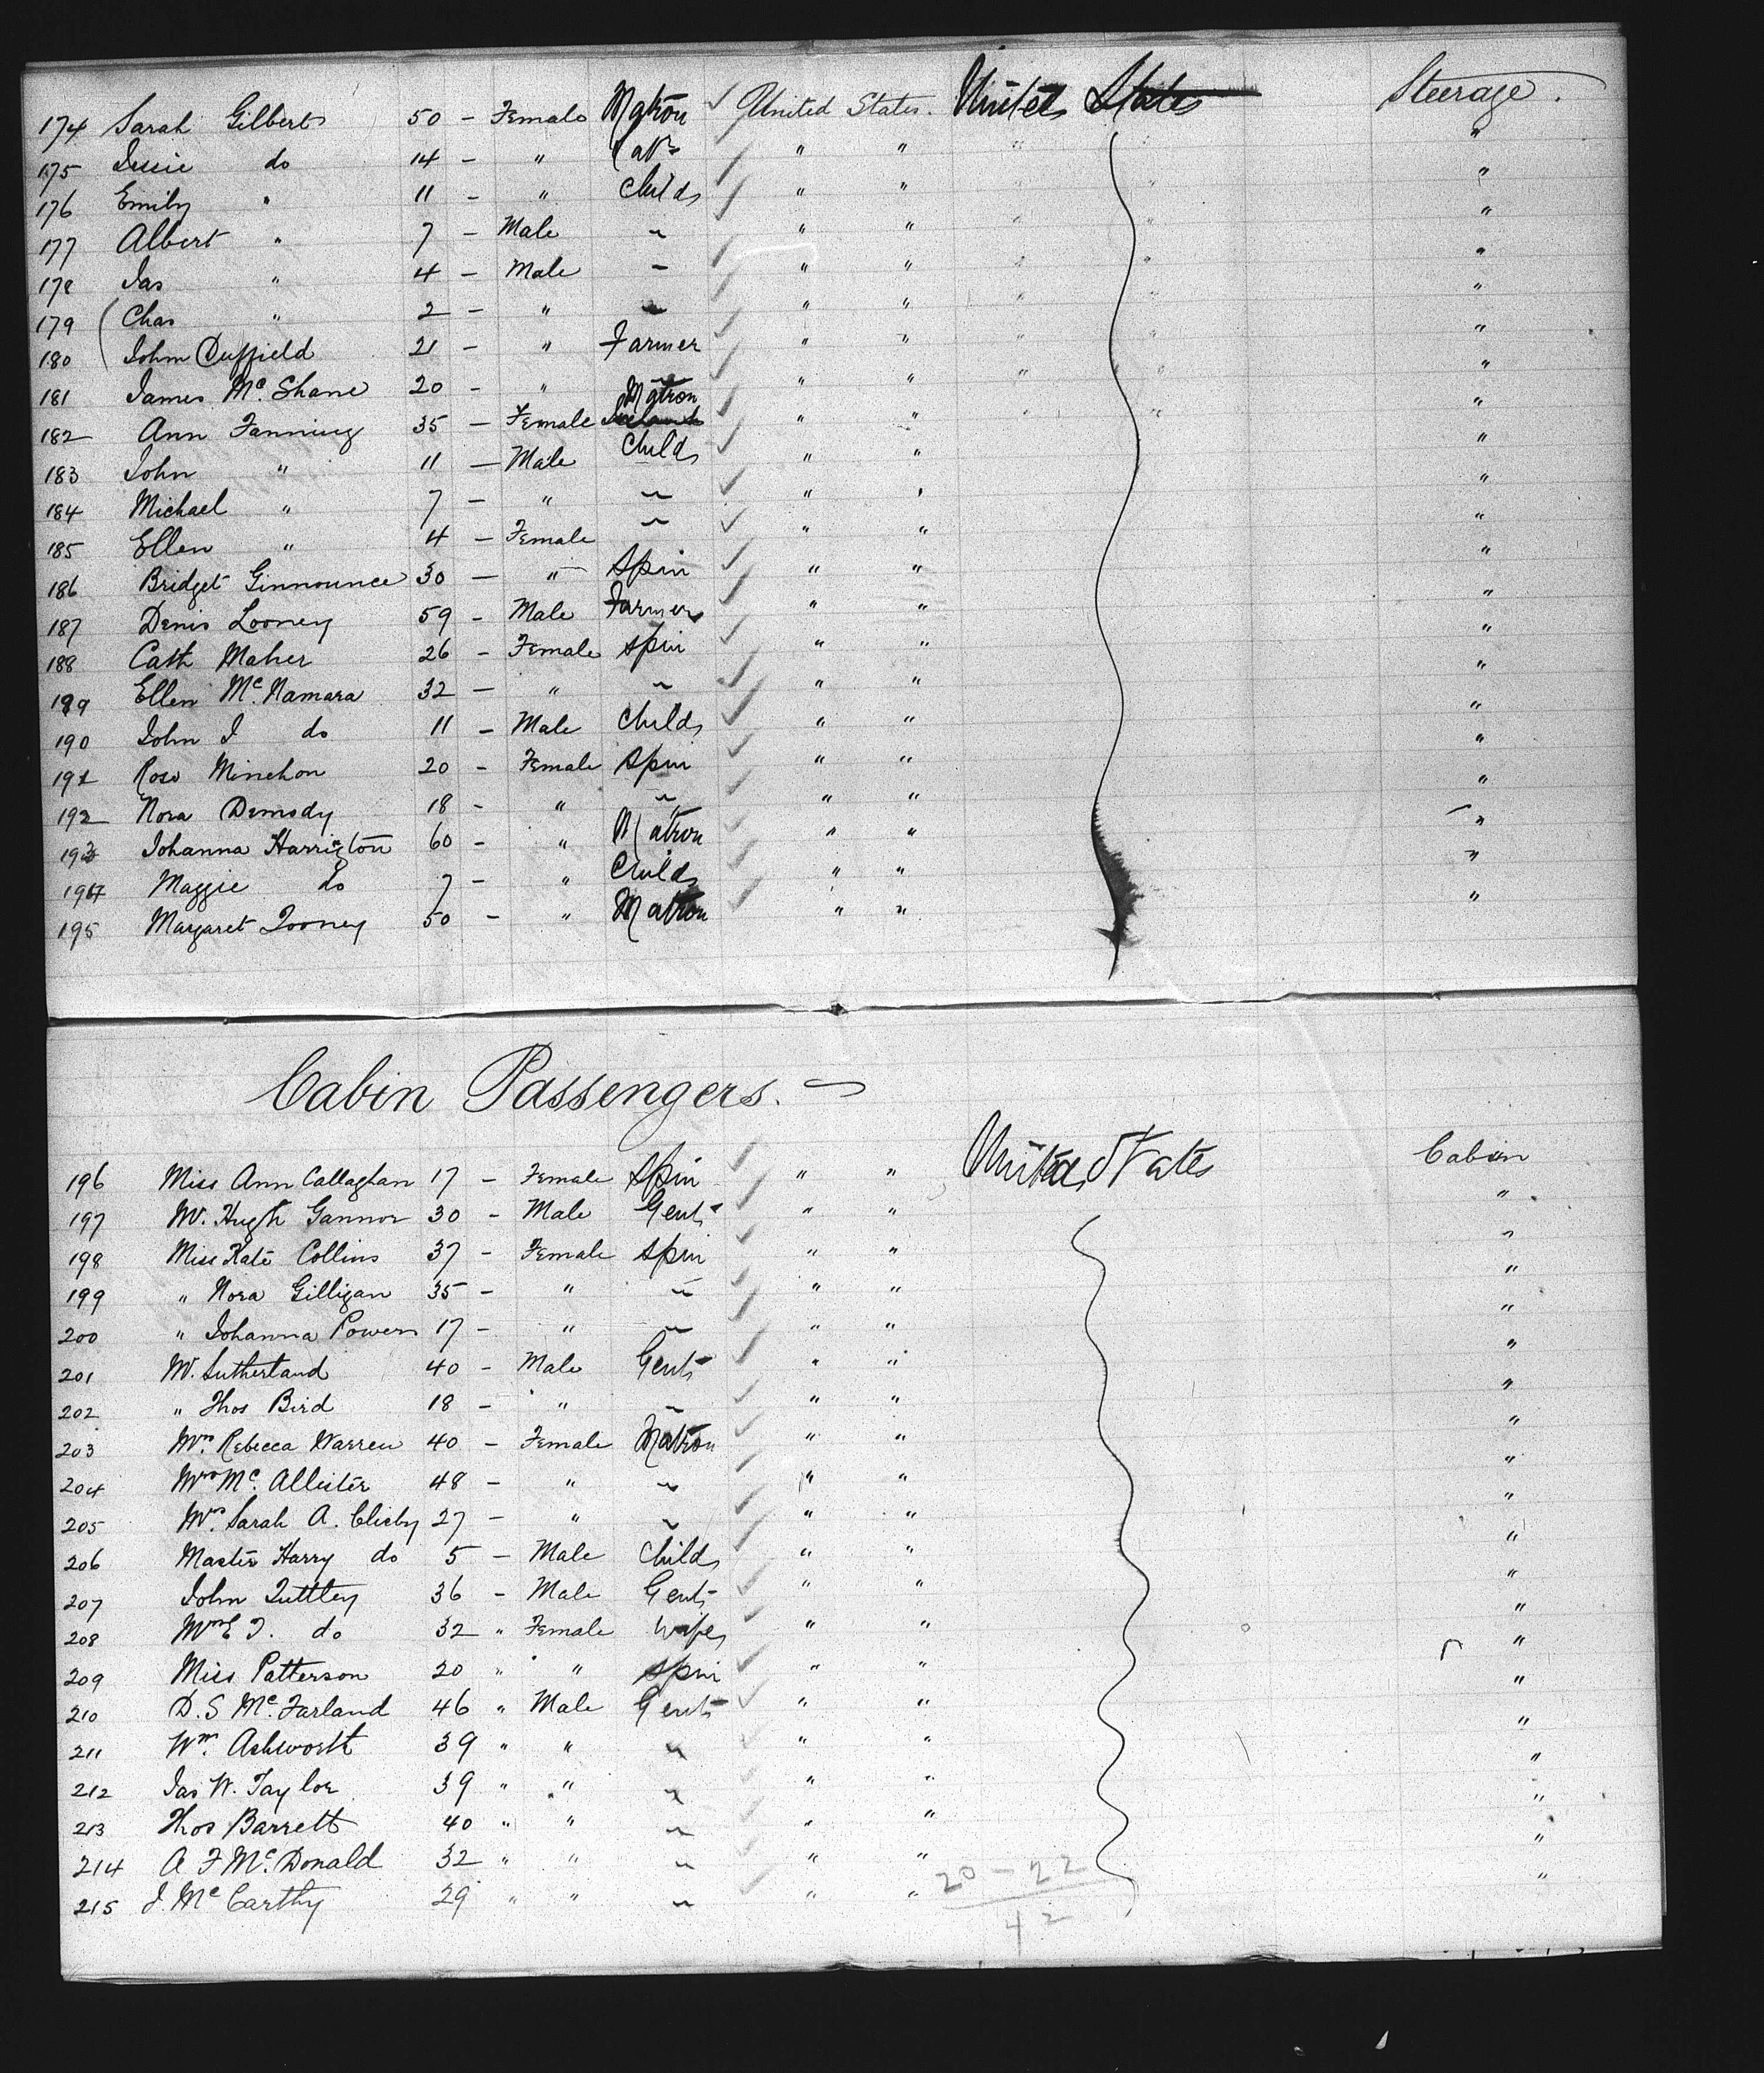 174 Sarah Gilbert 50 - Female Matron ✓ United States. United States Steerage.
175 Jessie do 14 - " " " "
176 Emily " 11 - " Child " " "
177 Albert " 7 - Male " " " "
178 Jas " 4 - Male " " " "
179 Chas " 2 - " " " " "
180 John Duffield 21 - " Farmer " " "
181 James Mc. Shane 20 - " " " " "
182 Ann Fanning 35 - Female Matron " " "
183 John " 11 - Male Child " " "
184 Michael " 7 - " " " " "
185 Ellen " 4 - Female " " " "
186 Bridget Ginnounce 30 - " Spin " " "
187 Denis Looney 59 - Male Farmer " " "
188 Cath Maher 26 - Female Spin " " "
189 Ellen Mc. Namara 32 - " " " " "
190 John J do 11 - Male Child " " "
191 Rose Minehon 20 - Female Spin " " "
192 Nora Demsdy 18 - " " " " "
193 Johanna Harrigton 60 - " Matron " " "
194 Maggie do 7 - " Child " " "
195 Margaret Looney 50 - " Matron " " "
Cabin Passengers.
196 Miss Ann Callaghan 17 - Female Spin " " United States Cabin
197 Mr. Hugh Gannor 30 - Male Gent " " "
198 Miss Kate Collins 37 - Female Spin " " "
199 " Nora Gilligan 35 - " " " " "
200 " Johanna Powers 17 - " " " " "
201 Mr. Sutherland 40 - Male Gent " " "
202 " Thos Bird 18 - " " " " "
203 Mrs. Rebecca Warren 40 - Female Matron " " "
204 Mrs Mc. Allister 48 - " " " " "
205 Mrs. Sarah A. Clisby 27 - " " " " "
206 Master Harry do 5 - Male Child " " "
207 John Tuttley 36 - Male Gent " " "
208 Mrs E J. do 32 " Female Wife " " "
209 Miss Patterson 20 " " Spin " " "
210 D. S Mc. Farland 46 " Male Gent " " "
211 Wm. Ashworth 39 " " " " " "
212 Jas W. Taylor 39 " " " " " "
213 Thos Barrett 40 " " " " " "
214 A F Mc. Donald 32 " " " " " "
215 J. Mc Carthy 29 " " " " " "
20 - 22
42